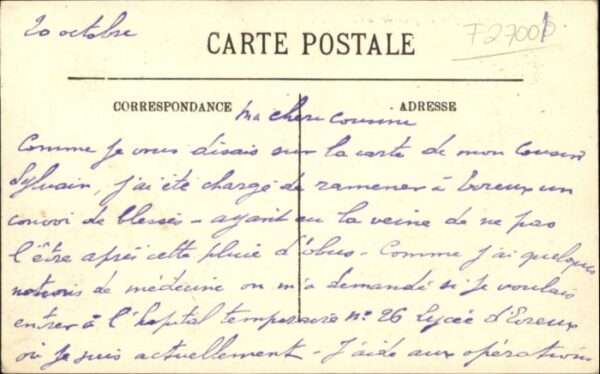 20 octobre
F27001
CARTE POSTALE
CORRESPONDANCE
ADRESSE
Ma chère cousine
Comme je vous disais sur la carte de mon cousin
Sylvain, j'ai été chargé de ramener à Evreux un
convoi de blessés - ayant eu la veine de ne pas
l'être après cette pluie d'obus - Comme j'ai quelques
notions de médecine on m'a demandé si je voulais
entrer à l'hopital temporaire n° 26 Lycée d'Evreux
où je suis actuellement - J'aide aux opérations